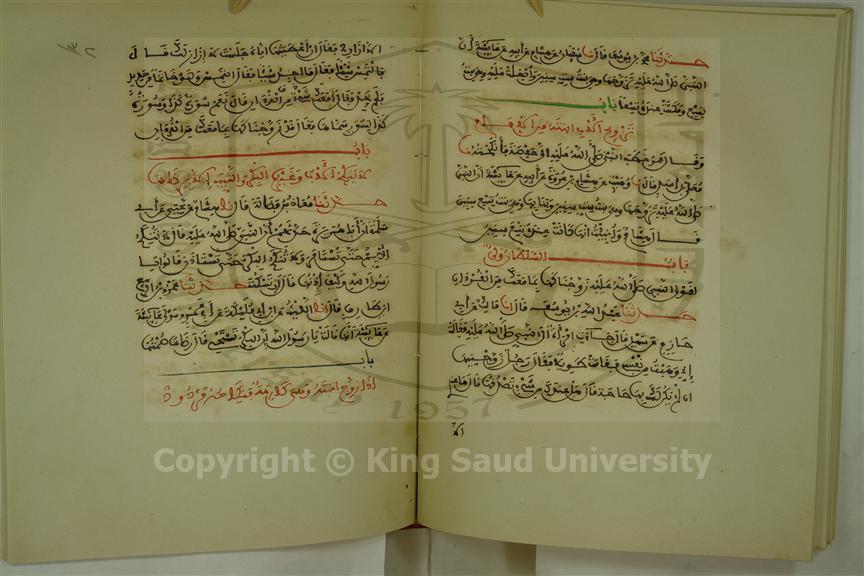 حدثنا محمد بن يوسف قال نا سفيان عن هشام عن ابيه عن عائشة ان
النبي صلى الله عليه تزوجها وهي بنت ست سنين وادخلت عليه وهي بنت
تسع ومكثت عنده تسعا باب
تزويج الاب ابنته من الامام
وقال عمر خطب النبي صلى الله عليه الي حفصة فانكحته نا
معلى بن اسد قال نا وهيب عن هشام بن عروة عن ابيه عن عائشة ان النبي
صلى الله عليه تزوجها وهي بنت ست سنين وبنى بها وهي بنت تسع سنين
قال هشام وانبئت انها كانت عنده تسع سنين
باب السلطان ولي
لقول النبي صلى الله عليه زوجناكها بما معك من القرءان
حدثنا عبد الله بن يوسف قال انا مالك عن ابي
حازم عن سهل قال جاءت امراة الى النبي صلى الله عليه فقالت
اني وهبت من نفسي فقامت طويلا فقال رجل زوجنيها
ان لم يكن لك بها حاجة قال هل عندك من شيء تصدقها قال ما عندي
الا
٣٢
الا ازاري فقال ان اعطيتها اياه جلست لا ازار لك قال
فالتمس شيئا فقال ما اجد شيئا فقال التمس ولو خاتما من حديد
فلم يجد فقال امعك شيء من القرءان قال نعم سورة كذا وسورة
كذا لسور سماها فقال قد زوجناكها بما معك من القرءان
باب
لا ينكح الاب وغيره البكر والثيب الا برضاهما
حدثنا معاذ بن فضالة قال نا هشام عن يحيى عن ابي
سلمة ان ابا هريرة حدثهم ان النبي صلى الله عليه قال لا تنكح
الايم حتى تستامر ولا تنكح البكر حتى تستاذن قالوا يا
رسول الله وكيف اذنها قال ان تسكت حدثنا عمرو بن الربيع
ابن طارق قال انا الليث عن ابن ابي مليكة عن ابي عمرو مولى عائشة
عن عائشة انها قالت يا رسول الله ان البكر تستحي قال رضاها صمتها
باب
اذا زوج ابنته وهي كارهة فنكاحه مردود
1957
Copyright © King Saud University